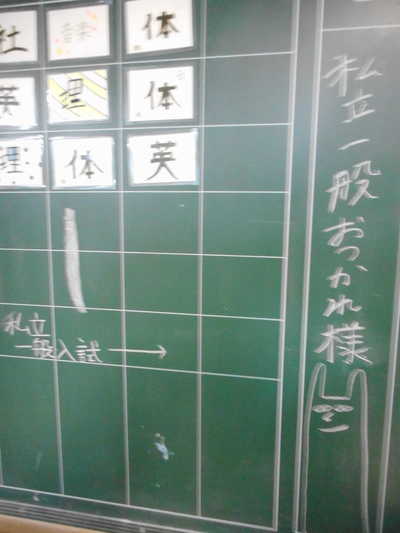 社 音楽 体
英 理 体
理 体 英
私立
一般入試→
私立一般おつかれ様